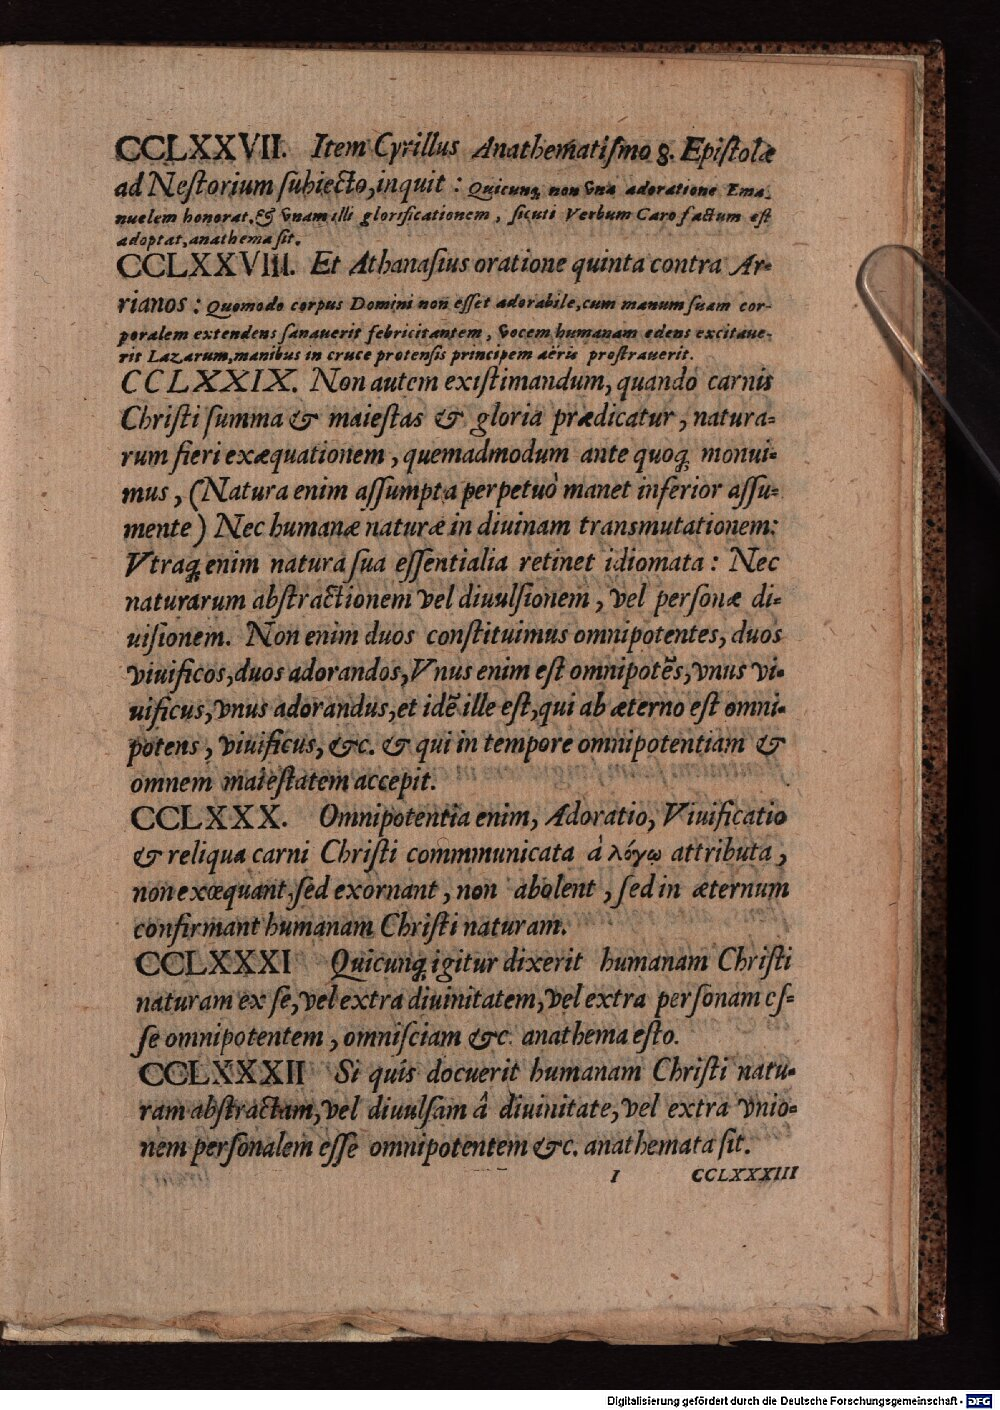 CCLXXVII. Item Cyrillus Anathem̄atiſmo 8. Epiſtolæ
ad Neſtorium ſubiecto, inquit : Quicunq; non vna adoratione Ema-
nuelem honorat, & vnam illi glorificationem, ſicuti Verbum Caro factum eſt
adoptat, anathema ſit.
CCLXXVIII. Et Athanaſius oratione quinta contra Ar-
rianos : Quomodo corpus Domini non eſſet adorabile, cum manum ſuam cor-
poralem extendens ſanauerit febricitantem, vocem humanam edens excitaue-
rit Lazarum, manibus in cruce protenſis principem aëris proſtrauerit.
CCLXXIX. Non autem exiſtimandum, quando carnis
Chriſti ſumma & maieſtas & gloria prædicatur, natura-
rum fieri exæquationem, quemadmodum ante quoq; monui-
mus, (Natura enim aſſumpta perpetuò manet inferior aſſu-
mente) Nec humanæ naturæ in diuinam transmutationem:
Vtraq; enim natura ſua eſſentialia retinet idiomata : Nec
naturarum abſtractionem vel diuulſionem, vel perſonæ di-
uiſionem. Non enim duos conſtituimus omnipotentes, duos
viuificos, duos adorandos, Vnus enim eſt omnipotēs, vnus vi-
uificus, vnus adorandus, et idē ille eſt, qui ab æterno eſt omni-
potens, viuificus, &c. & qui in tempore omnipotentiam &
omnem maieſtatem accepit.
CCLXXX. Omnipotentia enim, Adoratio, Viuificatio
& reliqua carni Chriſti commmunicata à λόγω attributa,
non exœquant, ſed exornant, non abolent, ſed in æternum
confirmant humanam Chriſti naturam.
CCLXXXI Quicunq; igitur dixerit humanam Chriſti
naturam ex ſe, vel extra diuinitatem, vel extra perſonam eſ-
ſe omnipotentem, omniſciam &c. anathema eſto.
CCLXXXII Si quis docuerit humanam Chriſti natu-
ram abſtractam, vel diuulſam â diuinitate, vel extra vnio-
nem perſonalem eſſe omnipotentem &c. anathemata ſit.
I CCLXXXIII
Digitalisierung gefördert durch die Deutsche Forschungsgemeinschaft - DFG